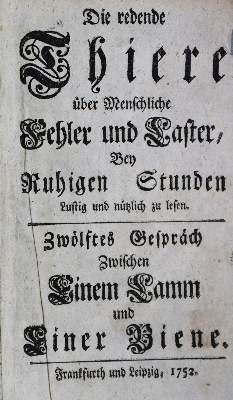 Die redende
Thiere
über Menschliche
Fehler und Laster,
Bey
Ruhigen Stunden
Lustig und nützlich zu lesen.
Zwölftes Gespräch
Zwischen
Einem Lamm
und
Einer Biene.
Franckfurth und Leipzig, 1752.